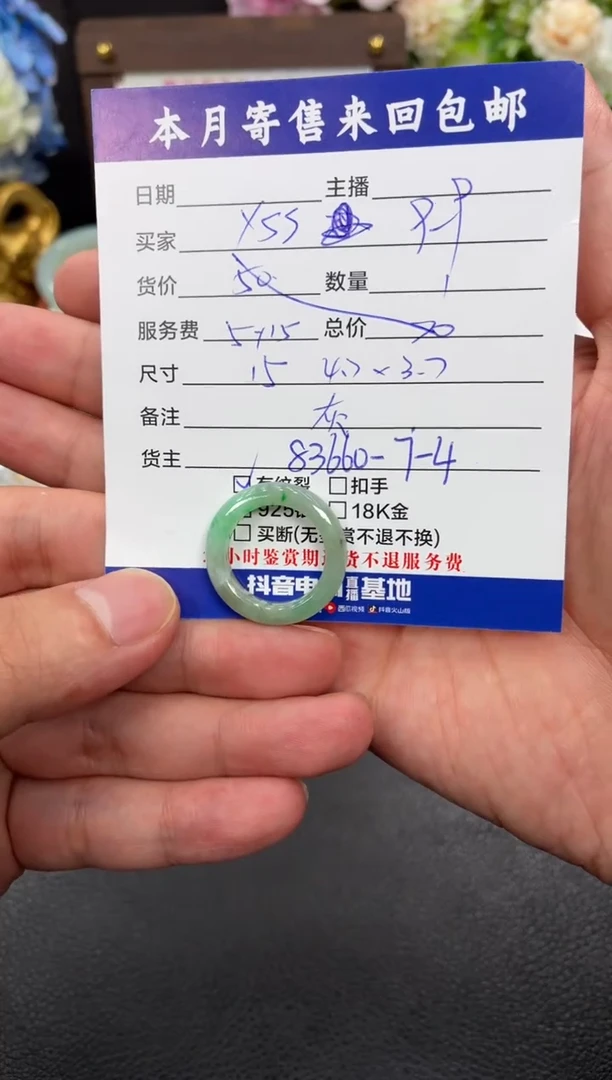 本月寄售来回包邮
日期 主播
买家 YSS
货价 50 数量 1
服务费 5+15 总价 70
尺寸 15 4.7×3.7
备注 灰
货主 83660-7-4
有纹裂 扣手
925 18K金
买断(无 赏不退不换)
小时鉴赏期 货不退服务费
抖音电 直播基地
西瓜视频 抖音火山版